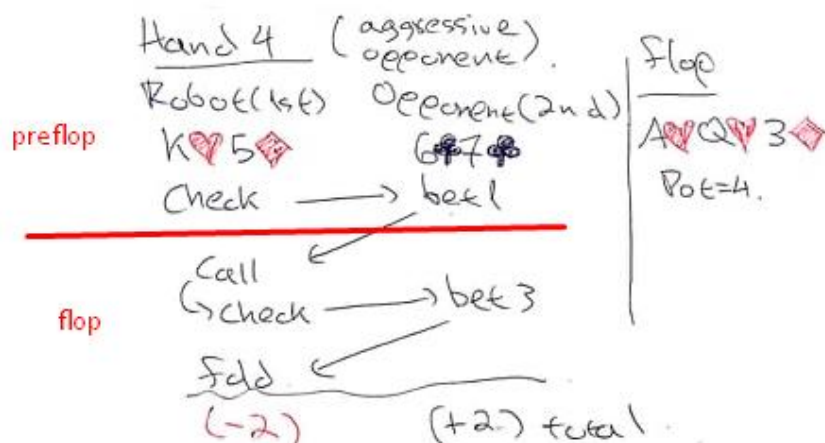 Hand 4 (aggressive opponent).
Robot(1st) Opponent(2nd)
preflop
K♥ 5♦ 6♣7♣
Check bet 1
Call
Check bet 3
flop
fold
(-2) (+2) total.
flop
A♥ Q♥ 3♦
Pot=4.